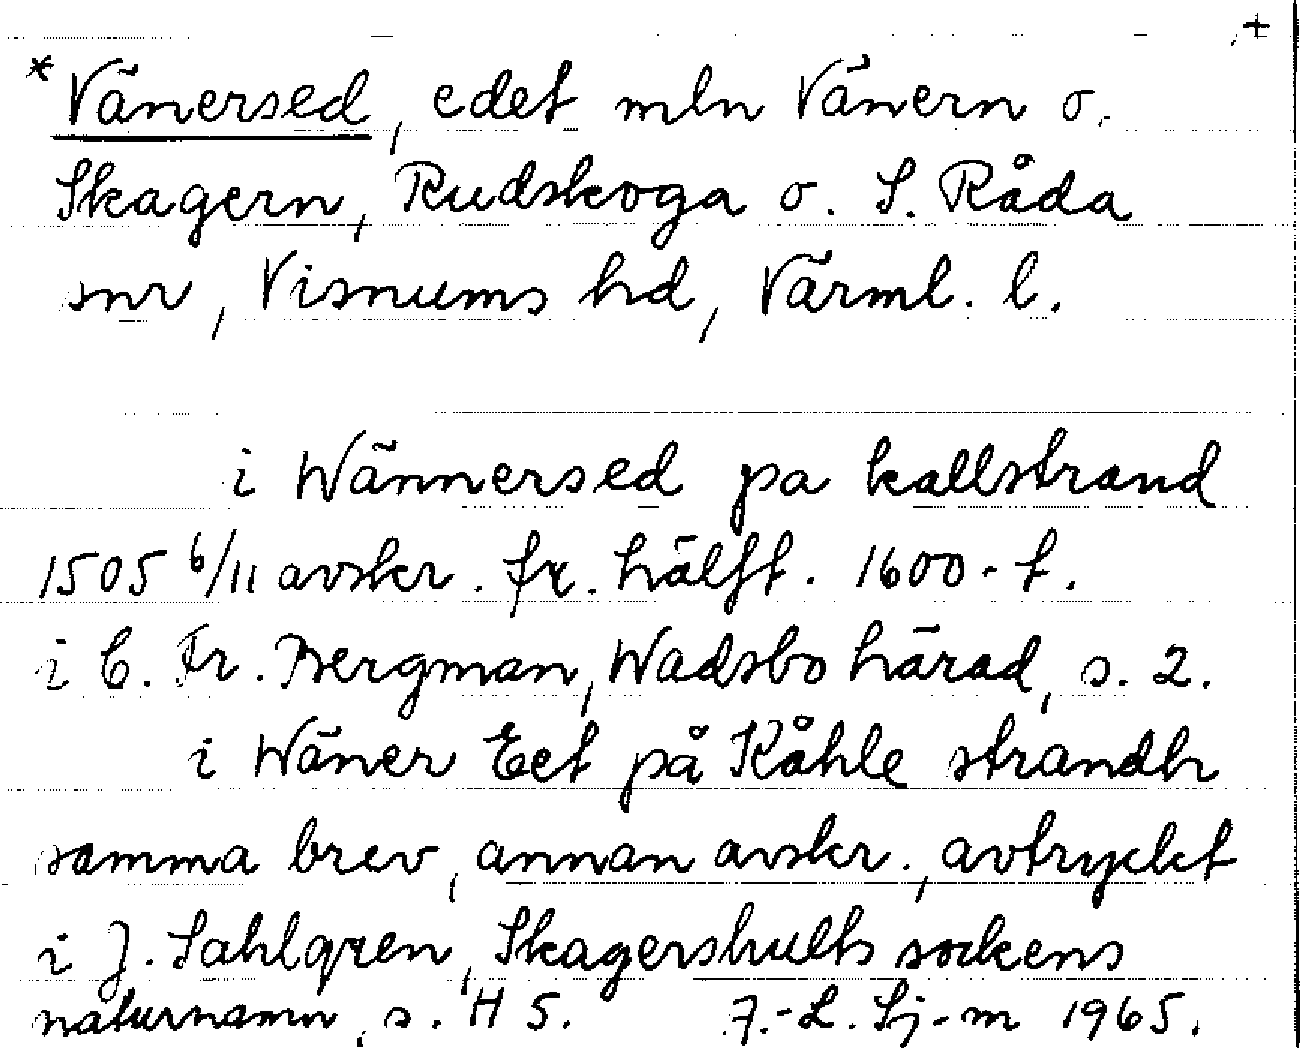 +
* Vänersed, edet mln Vänern o.
Skagern, Rudskoga o. S. Råda
snr, Visnums hd, Värml. l.
i Wännersed pa kallstrand
1505 6/11 avskr. fr. hälft. 1600-t.
i C. Fr. Bergman, Wadsbo härad, s. 2.
i Wäner Eet på Kåhle strandh
samma brev, annan avskr., avtryckt
i J. Sahlgren, Skagershults sockens
naturnamn, s. H 5. J.-L. Lj-m 1965.